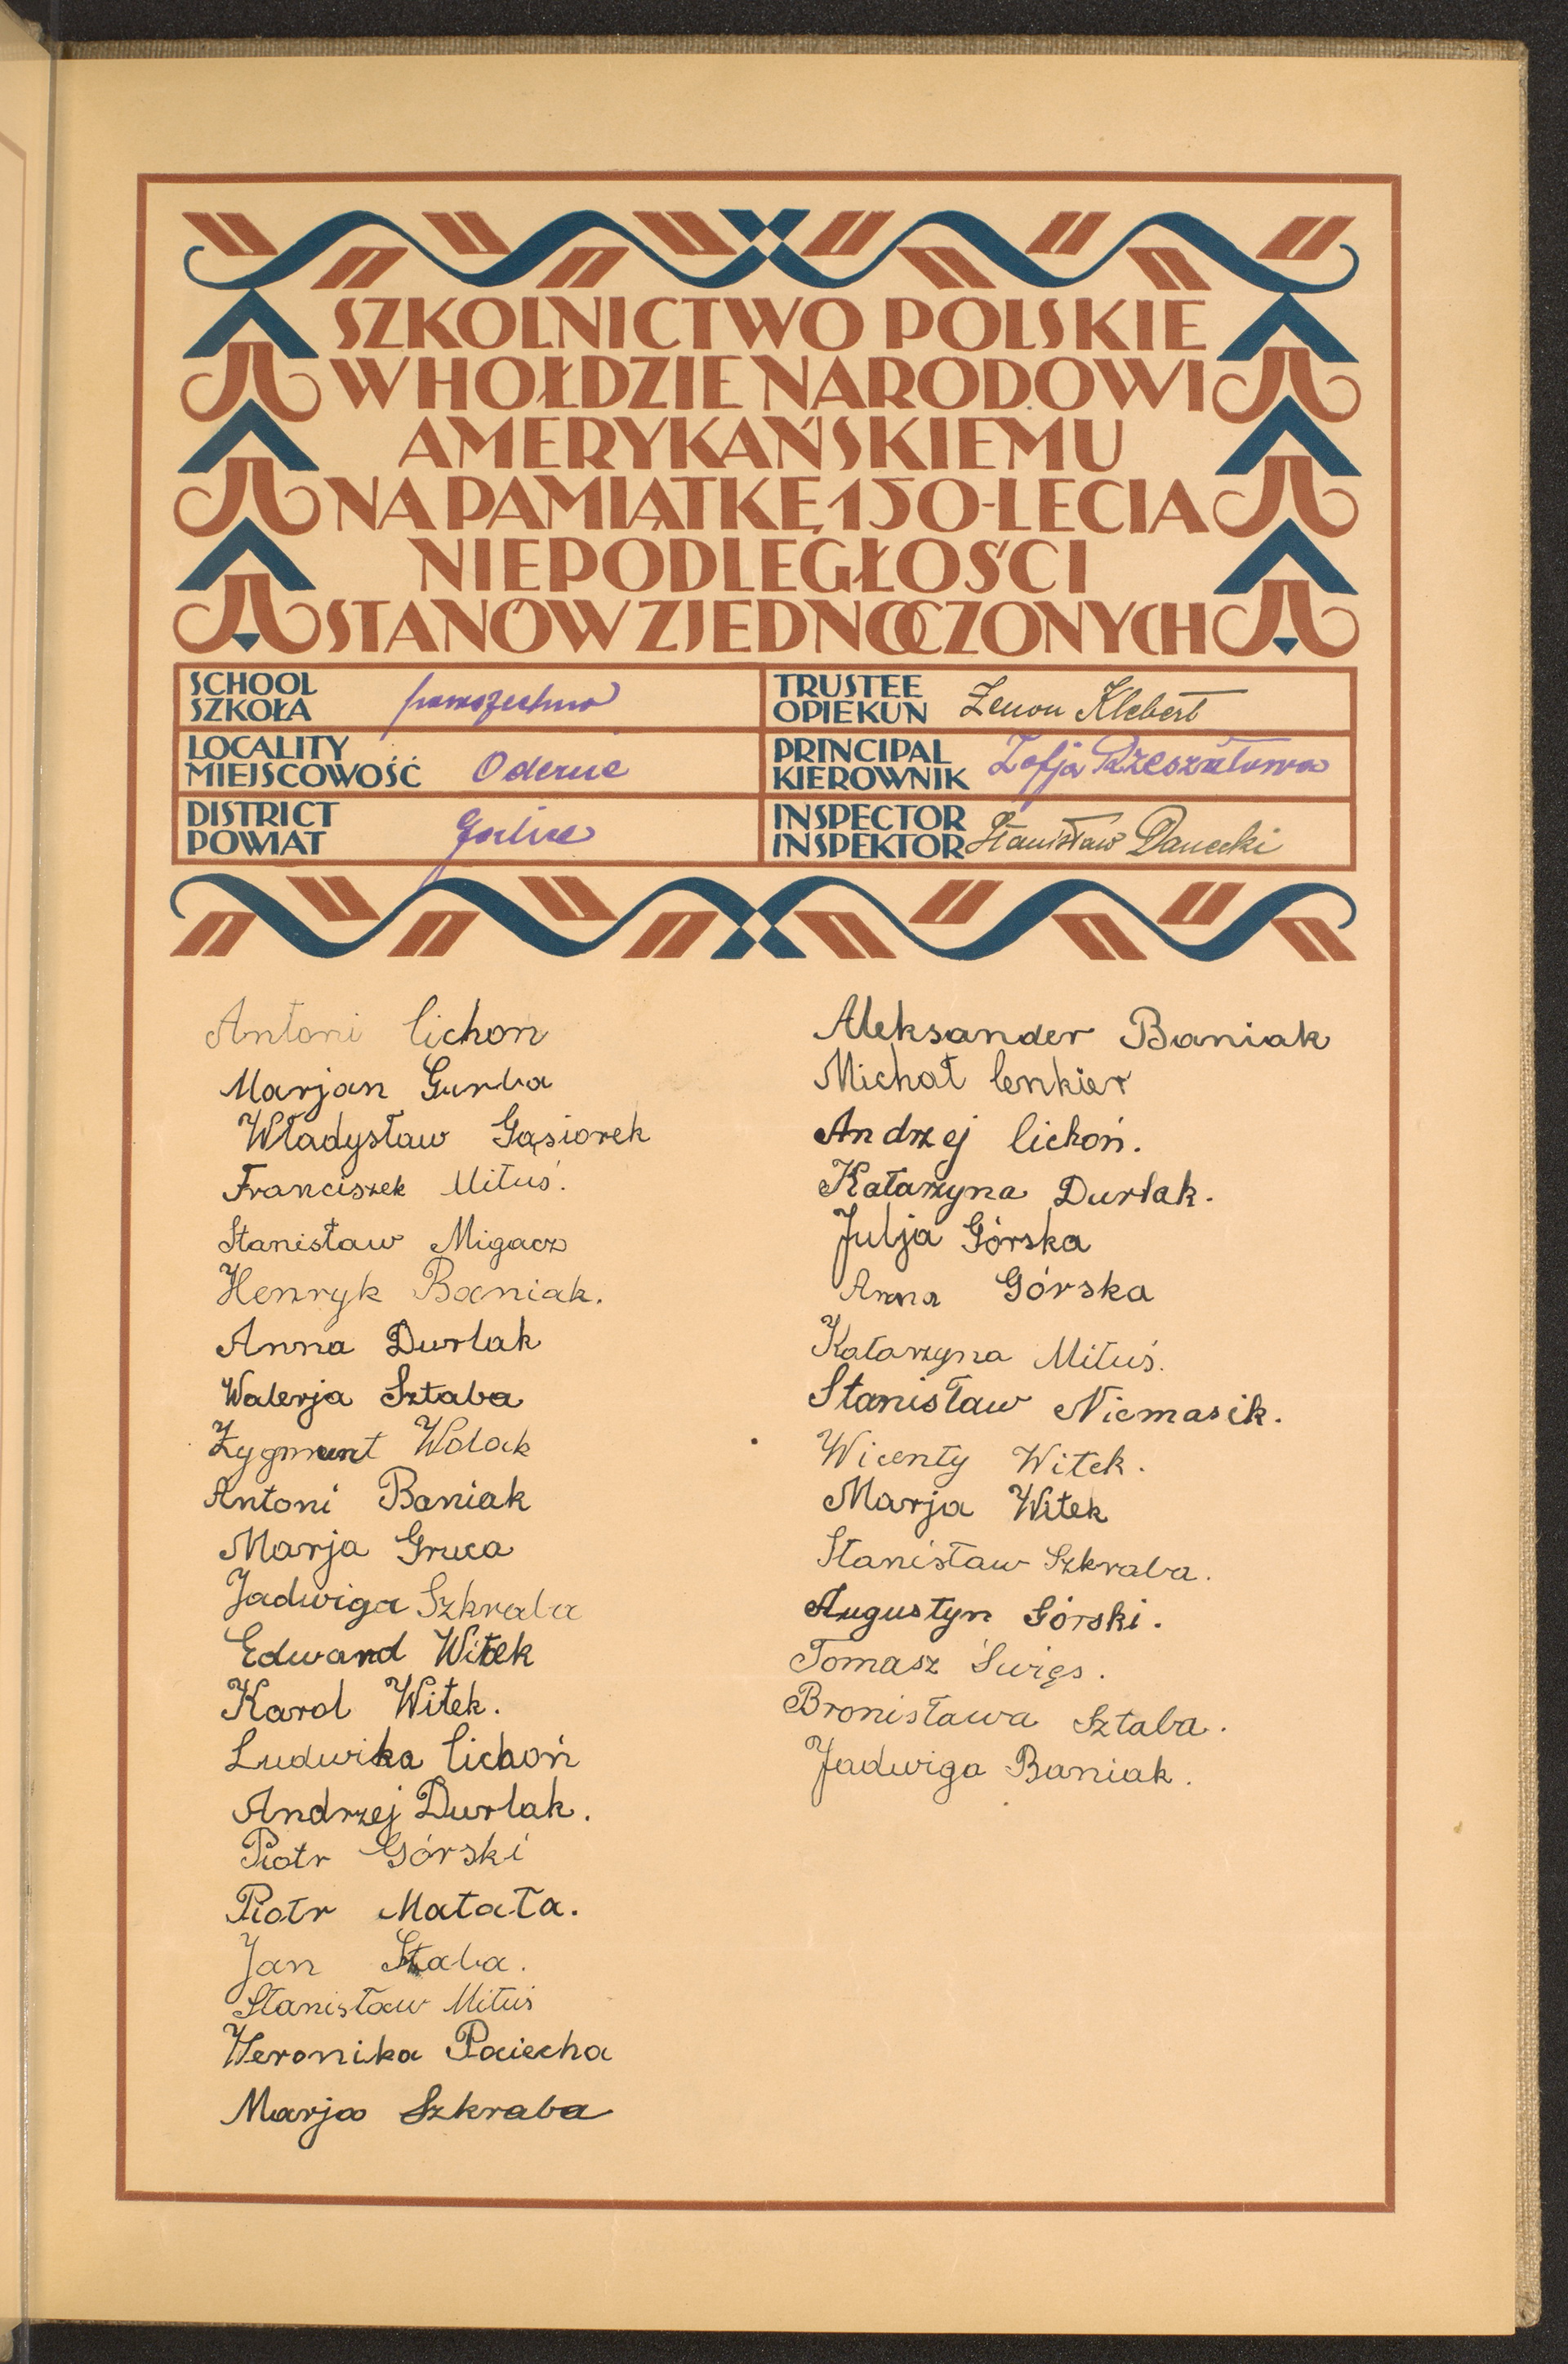 SZKOLNICTWO POLSKIE
W HOŁDZIE NARODOWI
AMERYKAŃSKIEMU
NA PAMIĄTKĘ 150-LECIA
NIEPODLEGŁOŚCI
STANÓW ZJEDNOCZONYCH
SCHOOL
SZKOŁA powszechna
LOCALITY
MIEJSCOWOŚĆ Oderne
DISTRICT
POWIAT Gorlice
TRUSTEE
OPIEKUN Zenon Klebert
PRINCIPAL
KIEROWNIK Zofja Rzeszutowa
INSPECTOR
INSPEKTOR Stanisław Danecki
Antoni Cichon
Marjan Gurba
Władysław Gąsiorek
Franciszek Mituś.
Stanisław Migacz
Henryk Baniak.
Anna Durlak
Walerja Sztaba
Zygmunt Wolak
Antoni Baniak
Marja Gruca
Jadwiga Szkraba
Edward Witek
Karol Witek.
Ludwika Cichoń
Andrzej Durlak.
Piotr Górski
Piotr Matała.
Jan Sztaba.
Stanisław Mituś
Weronika Paciecha
Marja Szkraba
Aleksander Baniak
Michał Cenkier
Andrzej Cichoń.
Katarzyna Durlak.
Julja Górska
Anna Górska
Katarzyna Mituś.
Stanisław Niemasik.
Wicenty Witek.
Marja Witek
Stanisław Szkraba.
Augustyn Górski.
Tomasz Święs.
Bronisława Sztaba.
Jadwiga Baniak.